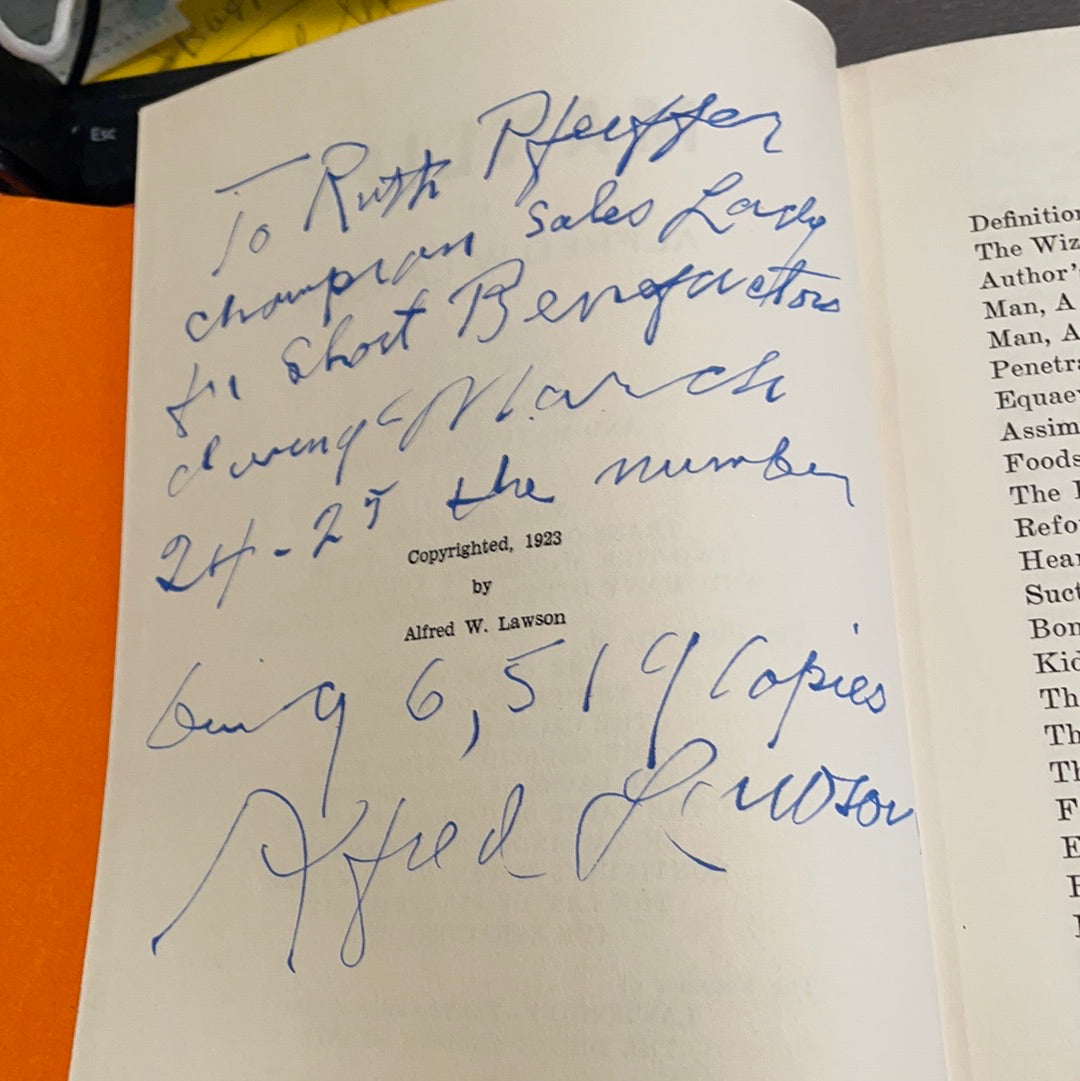 Esc
To Ruth Pfeuffer
champion sales Lady
for Short Benefactors
during March
24-25 the number
Copyrighted, 1923
by
Alfred W. Lawson
being 6,519 Copies
Alfred Lawson
Definition
The Wiz
Author's
Man, A
Man, A
Penetra
Equaev
Assim
Foods
The
Refo
Hear
Suct
Bon
Kid
Th
Th
Th
F
E